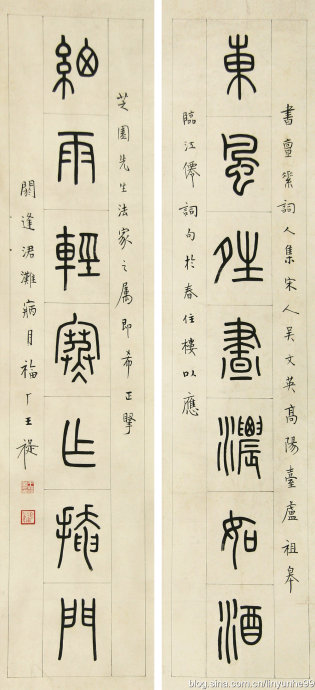 書亶絫詞人集宋人吳文英高陽臺盧祖皋
東風晴晝濃如酒
臨江僊詞句於春住樓以應
芝園先生法家之属即希正掔
細雨輕寒乍門
閼逢涒灘病月福厂王禔
blog.sina.com.cn/linyunhe99